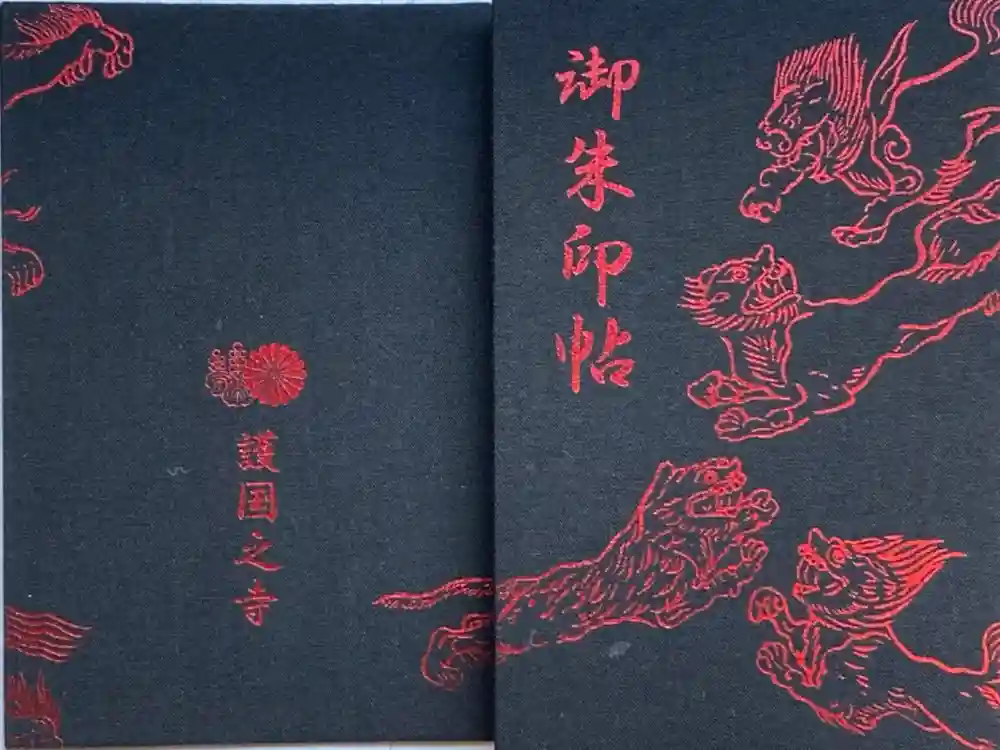 御朱印帖
護国之寺